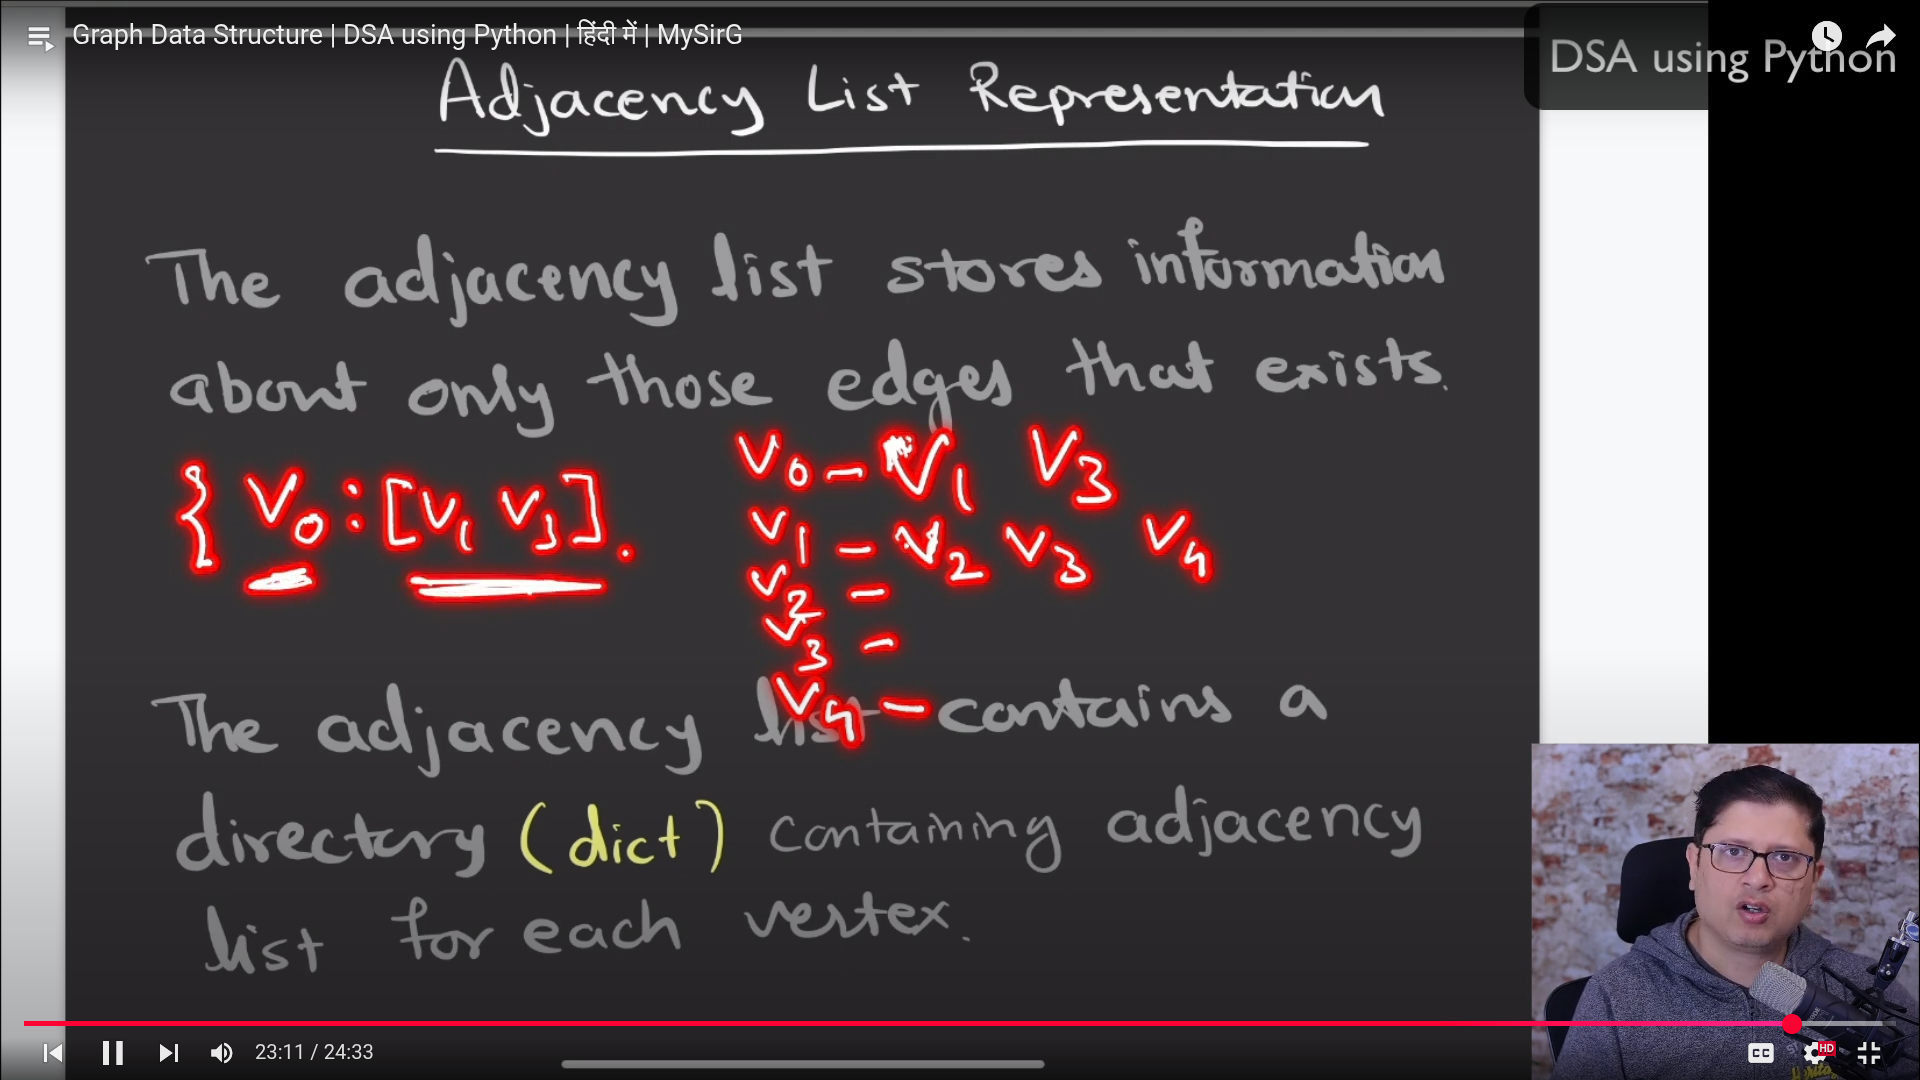 Graph Data Structure | DSA using Python | हिंदी में | MySirG
DSA using Python
Adjacency List Representation
The adjacency list stores information
about only those edges that exists.
{ V0 : [V1 V3].
V0 - V1 V3
V1 - V2 V3 V4
V2 -
V3 -
V4 -
The adjacency list contains a
directory (dict) containing adjacency
list for each vertex.
23:11 / 24:33
CC
HD